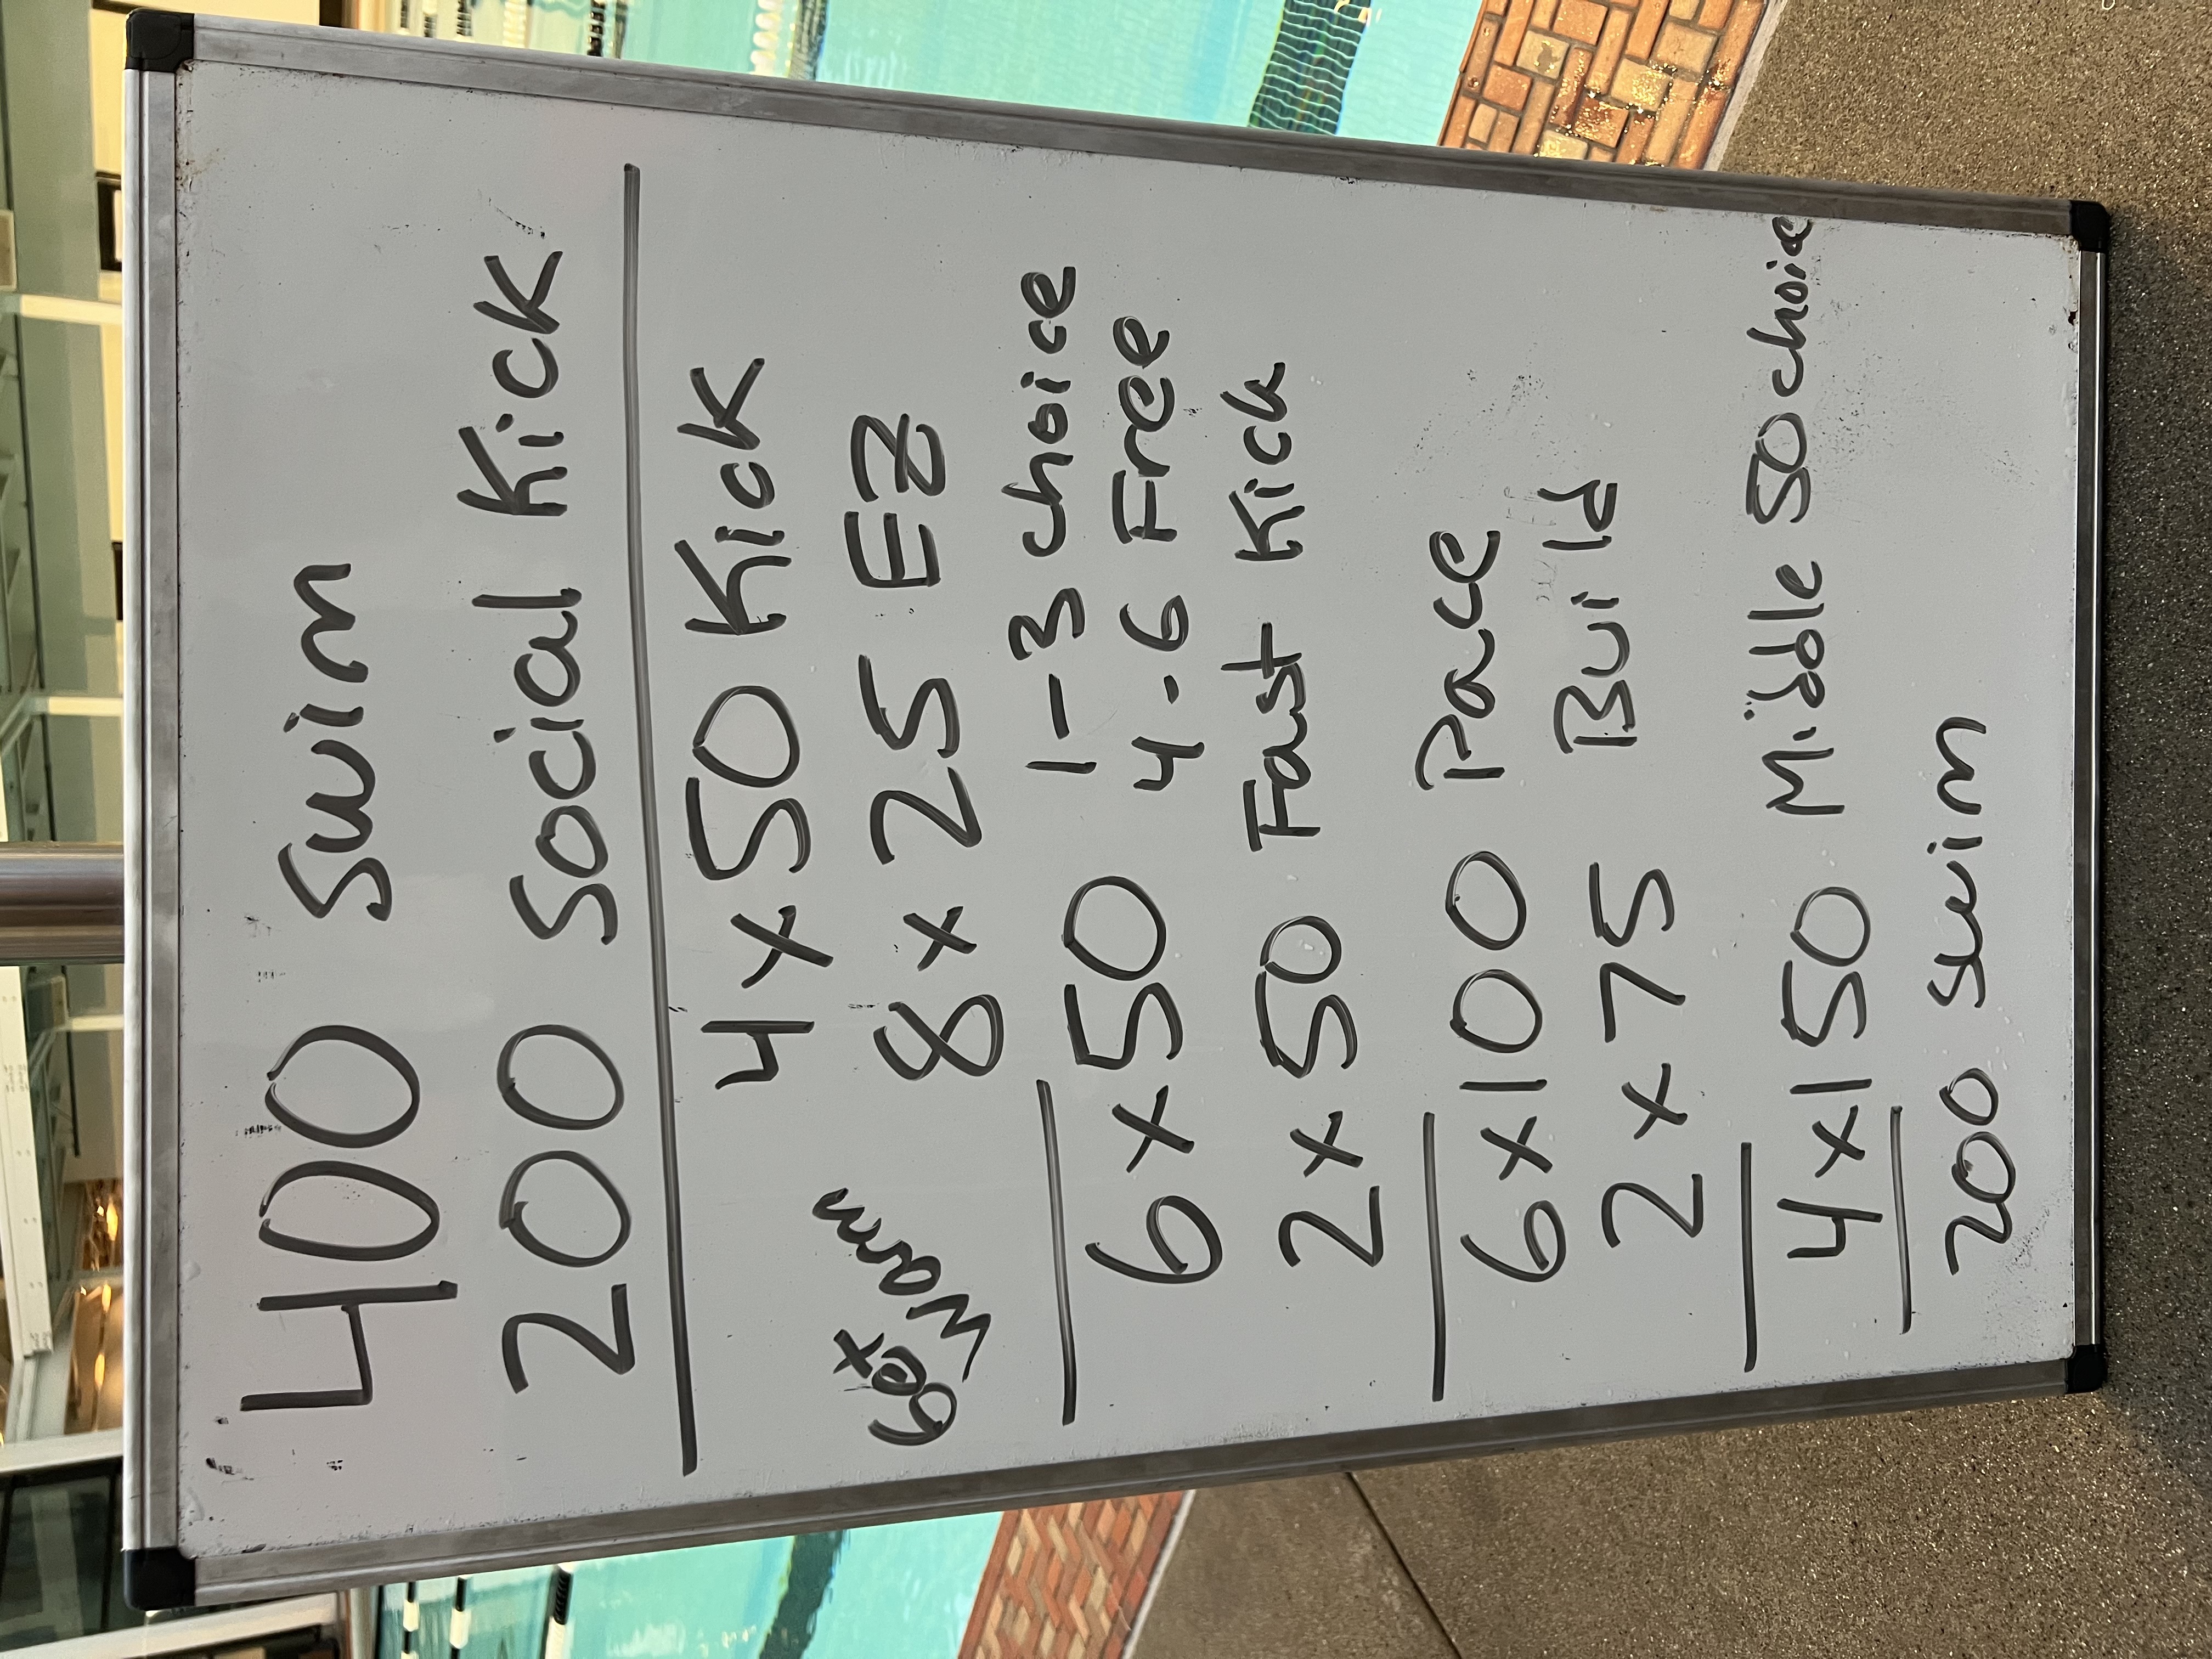 400 Swim
200 Social Kick
4x50 Kick
Get Warm
8x25 EZ
6x50 1-3 choice
4-6 Free
2x50 Fast Kick
6x100 Pace
2x75 Build
4x150 Middle 50 choice
200 Swim